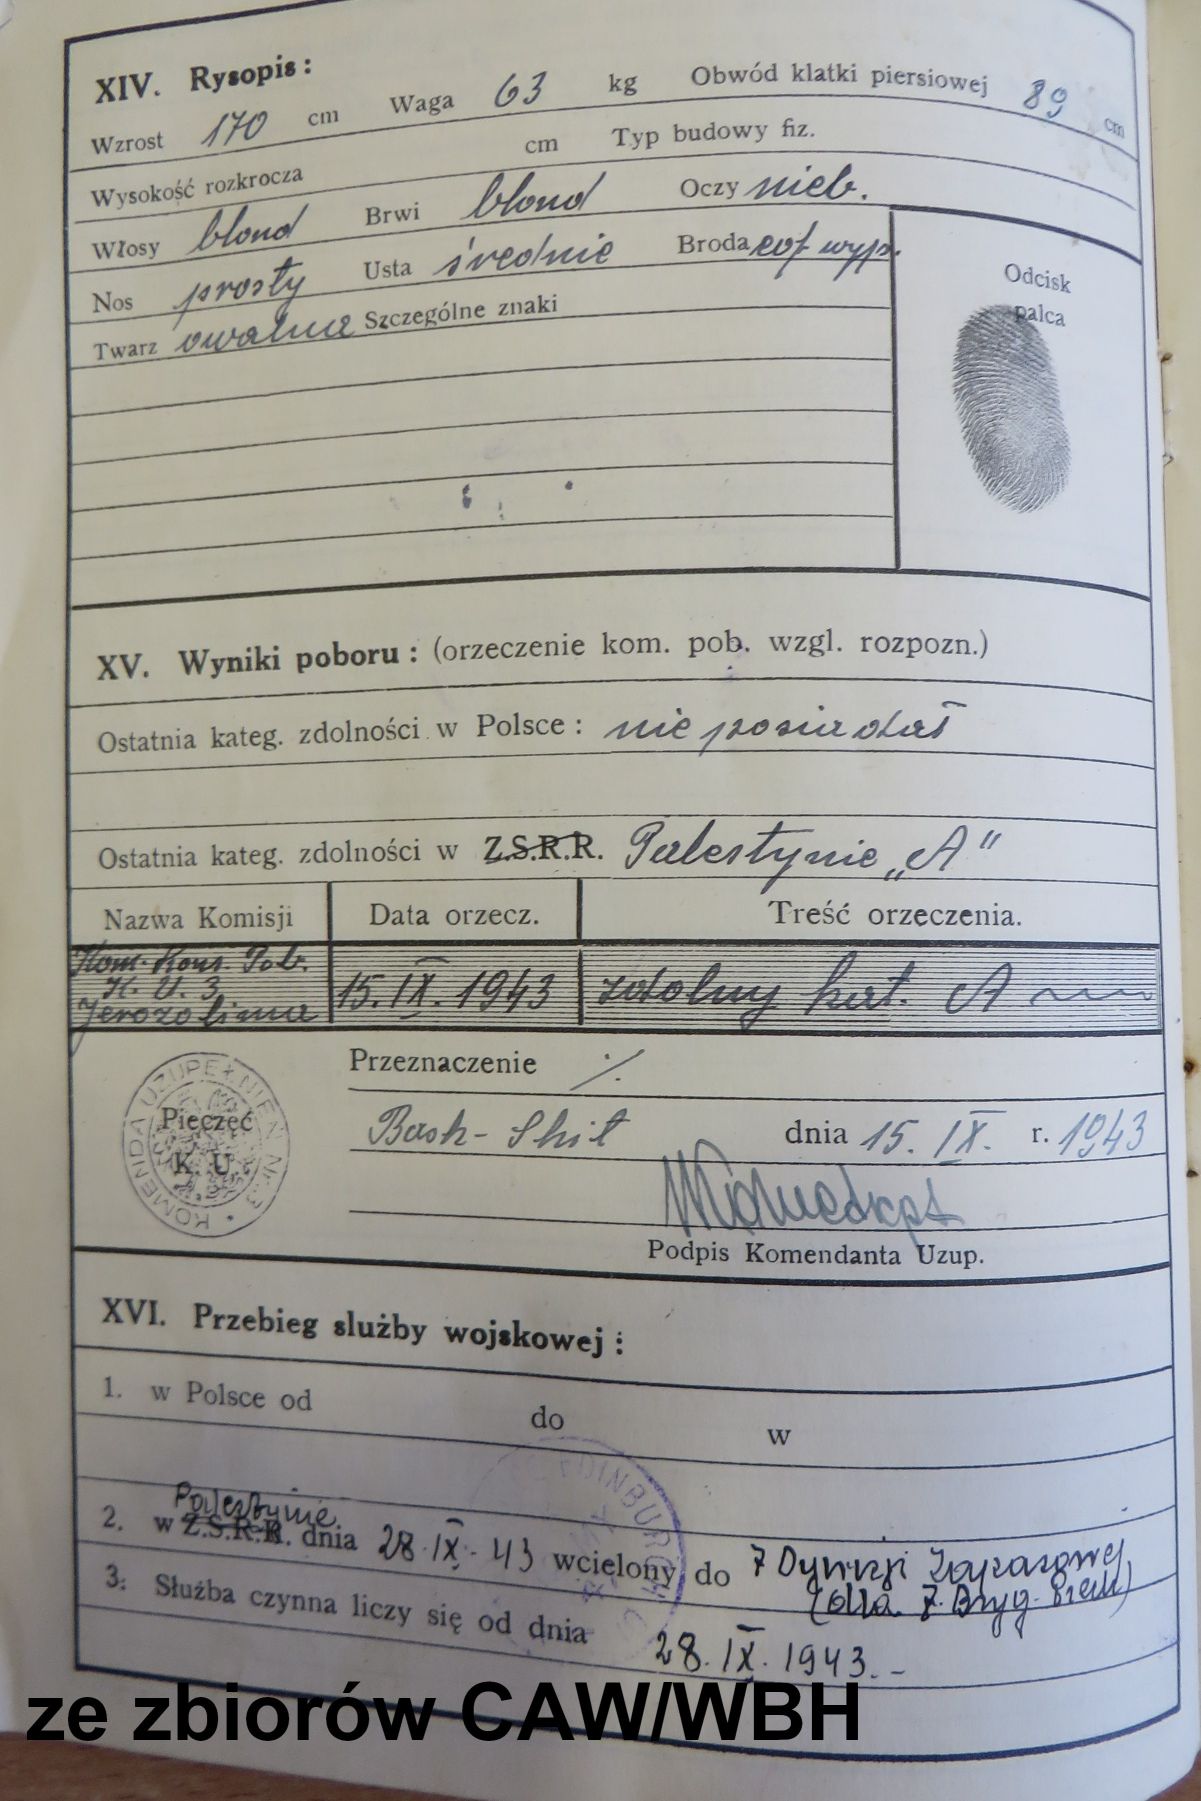 XIV. Rysopis:
Wzrost 170 cm Waga 63 kg Obwód klatki piersiowej 89 cm
Wysokość rozkrocza cm Typ budowy fiz.
Włosy blond Brwi blond Oczy nieb.
Nos prosty Usta średnie Broda
Twarz owalna Szczególne znaki
Odcisk
palca
XV. Wyniki poboru: (orzeczenie kom. pob. wzgl. rozpozn.)
Ostatnia kateg. zdolności w Polsce: nie posiadał
Ostatnia kateg. zdolności w Z.S.R.R. Palestynie „A”
Nazwa Komisji Data orzecz. Treść orzeczenia.
Kom. Pob.
K. U. 3
Jerozolima 15. IX. 1943 zdolny kat. A
Przeznaczenie ./.
KOMENDA UZUPEŁNIEŃ Nr. 3
Pieczęć
K. U.
dnia 15. IX. r. 1943
Podpis Komendanta Uzup.
XVI. Przebieg służby wojskowej:
1. w Polsce od do w
EDINBURGH
Palestynie
2. w Z.S.R.R. dnia 28.IX.43 wcielony do 7 Dywizji Zapasowej
(dla 7. Bryg.
3. Służba czynna liczy się od dnia 28.IX.1943.-
ze zbiorów CAW/WBH